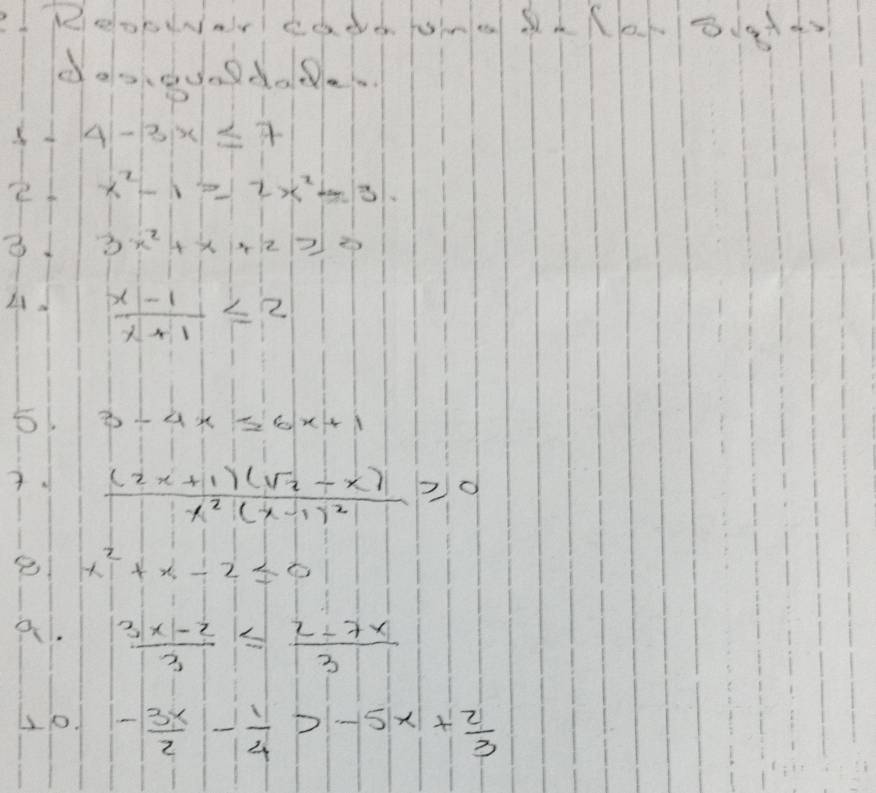 2. Resolver cada una de las sigtes
desigualdades.
1. 4 - 3x ≤ 7
2. x² - 1 ≥ 2x² - 3.
3. 3x² + x + 2 ≥ 0
4. (x - 1)/(x + 1) ≤ 2
5. 3 - 4x ≤ 6x + 1
7. ((2x + 1)(√2 - x))/(x²(x - 1)²) ≥ 0
8. x² + x - 2 ≤ 0
9. (3x - 2)/3 ≤ (2 - 7x)/3
10. -3x/2 - 1/4 > -5x + 2/3